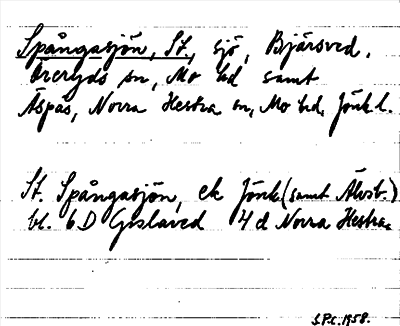 Spångasjön, St., sjö, Bjärsved,
Öreryds sn, Mo hd samt
Äspås, Norra Hestra sn, Mo hd, Jönk l.
St. Spångasjön, ek Jönk (samt Älvsb.)
bl. 6D Gislaved 4 d Norra Hestra.
S.P.C. 1958.